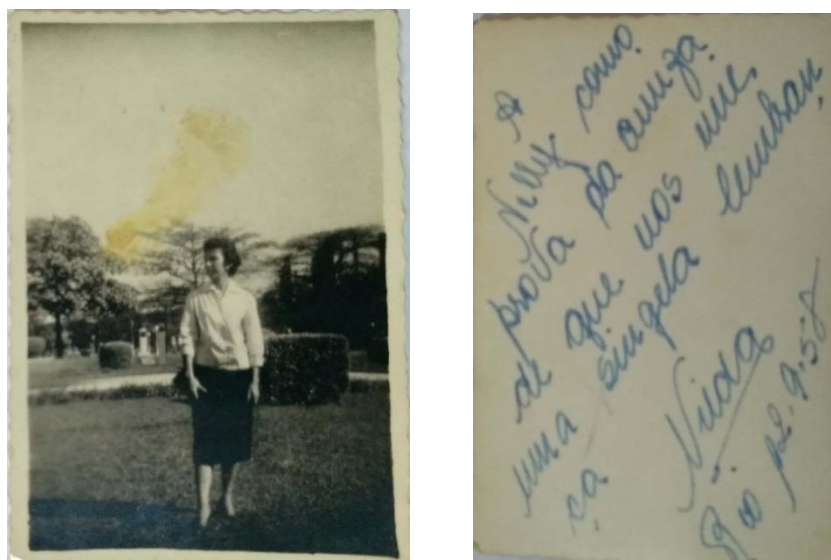 A
Nilly como
prova da amiza
de que nos une,
uma singela lembran
ça
Nilda
Rio 9.58